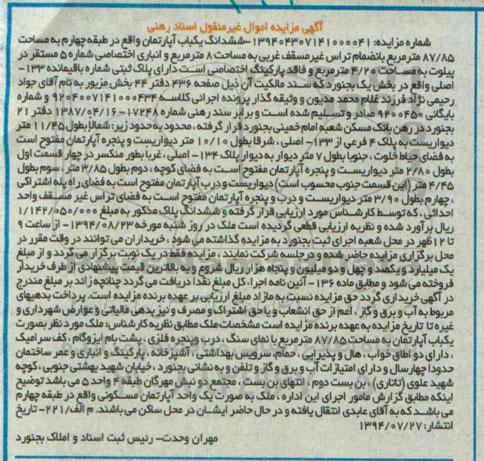 آگهی مزایده اموال غیرمنقول اسناد رهنی
شماره مزایده: ۱۳۹۴۰۴۳۰۷۱۴۱۰۰۰۰۴۱-ششدانگ یکباب آپارتمان واقع در طبقه چهارم به مساحت
۸۷/۸۵ مترمربع بانضمام تراس غیرمسقف غربی به مساحت ۸ مترمربع و انباری اختصاصی شماره ۵ مستقر در
پیلوت به مساحت ۴/۲۰ مترمربع و فاقد پارکینگ اختصاصی است دارای پلاک ثبتی شماره باقیمانده ۱۳۳-
اصلی واقع در بخش یک بجنورد که سند مالکیت آن ذیل صفحه ۴۳۶ دفتر ۴۴ بخش مزبور به نام آقای جواد
رحیمی نژاد فرزند غلام محمد مدیون و وثیقه گذار پرونده اجرائی کلاسه ۹۲۰۴۰۰۷۱۴۱۰۰۰۴۳۴ و شماره
بایگانی ۹۲۰۰۴۵۰ صادر و تسلیم شده است و برابر سند رهنی شماره ۱۷۲۴۸-۱۳۸۷/۰۴/۱۶ دفتر ۲۱
بجنورد در رهن بانک مسکن شعبه امام خمینی بجنورد قرار گرفته، محدود به حدود زیر: شمالا بطول ۱۱/۴۵ متر
دیواریست به پلاک ۴ فرعی از ۱۳۳- اصلی، شرقا بطول ۱۰/۱۰ متر دیواریست و پنجره آپارتمان مفتوح است
به فضای حیاط خلوت، جنوبا بطول ۷ متر دیوار به دیوار پلاک ۱۳۴- اصلی، غربا بطور منکسر در چهار قسمت اول
بطول ۲/۸۰ متر دیواریست و پنجره آپارتمان مفتوح است به فضای کوچه، دوم بطول ۳/۸۵ متر، سوم بطول
۴/۴۵ متر (این قسمت جنوب محسوب است) دیواریست و درب آپارتمان مفتوح است به فضای راه پله اشتراکی
، چهارم بطول ۳/۹۰ متر دیواریست و درب و پنجره آپارتمان مفتوح است به فضای تراس غیر مسقف واحد
احداثی، که توسط کارشناس مورد ارزیابی قرار گرفته و ششدانگ پلاک مذکور به مبلغ ۱/۱۴۲/۰۵۰/۰۰۰
ریال برآورد شده و نظریه ارزیابی قطعی گردیده است ملک در روز شنبه مورخه ۱۳۹۴/۰۸/۲۳- از ساعت ۹
تا ۱۲ ظهر در محل شعبه اجرای ثبت بجنورد به مزایده گذاشته می شود، خریداران می توانند در وقت مقرر در
محل برگزاری مزایده حاضر شده و در جلسه شرکت نمایند، مزایده فقط در یک نوبت برگزار می گردد و از مبلغ
یک میلیارد و یکصد و چهل و دو میلیون و پنجاه هزار ریال شروع و به بالاترین قیمت پیشنهادی از طرف خریدار
فروخته می شود و مطابق ماده ۱۳۶- آئین نامه اجرا، کل مبلغ نقدا دریافت می گردد چنانچه زائد بر مبلغ مندرج
در آگهی خریداری گردد حق مزایده نسبت به مازاد مبلغ ارزیابی بر عهده برنده مزایده است. پرداخت بدهیهای
مربوط به آب و برق و گاز، اعم از حق انشعاب و یا حق اشتراک و مصرف و نیز بدهی مالیاتی و عوارض شهرداری و
غیره تا تاریخ مزایده به عهده برنده مزایده است مشخصات ملک مطابق نظریه کارشناس: ملک مورد نظر بصورت
یکباب آپارتمان به مساحت ۸۷/۸۵ مترمربع با نمای سنگ، درب و پنجره فلزی، پشت بام ایزوگام، کف سرامیک
، دارای دو اطاق خواب، هال و پذیرایی، حمام، سرویس بهداشتی، آشپزخانه، پارکینگ و انباری و عمر ساختمان
حدودا چهارسال و دارای امتیازات آب و برق و گاز و تلفن و به نشانی بجنورد، خیابان شهید بهشتی جنوبی، کوچه
شهید علوی (تاتاری)، بن بست دوم، انتهای بن بست، مجتمع دو نبش مهرگان طبقه ۴ واحد ۵ می باشد توضیح
اینکه مطابق گزارش مامور اجرای این اداره، ملک به صورت یک واحد آپارتمان مسکونی واقع در طبقه چهارم
می باشد که به آقای عابدی انتقال یافته و در حال حاضر ایشان در محل ساکن می باشند. م الف/۲۲۱- تاریخ
انتشار: ۱۳۹۴/۰۷/۲۷
مهران وحدت- رئیس ثبت اسناد و املاک بجنورد